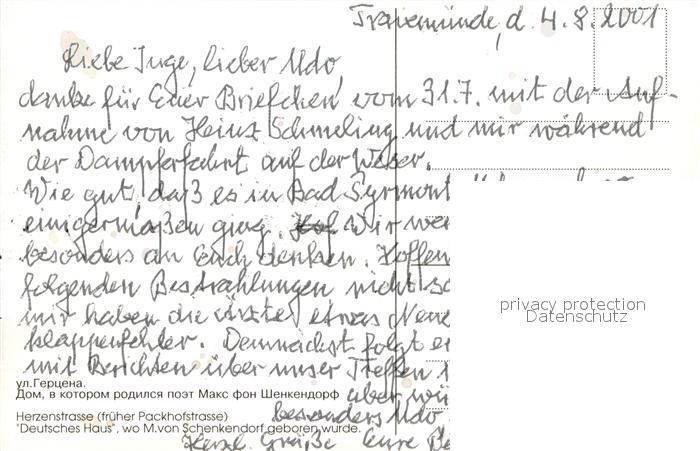 Travemünde, d. 4.8.2001
Liebe Inge, lieber Udo,
danke für Euer Briefchen vom 31.7. mit der Auf-
nahme von Heinz Schmeling und mir während
der Dampferfahrt auf der Weser.
Wie gut, daß es in Bad Pyrmont
einigermaßen ging. Wir wer
besonders an Euch denken. Hoffen
folgenden Bestrahlungen nicht so
mir haben die Ärzte etwas Neue
klappenfehler. Demnächst folgt e
mit Berichten über unser Treffen
aber wü
besonders Udo
Herzl. Grüße Eure Be
ул.Герцена.
Дом, в котором родился поэт Макс фон Шенкендорф
Herzenstrasse (früher Packhofstrasse)
"Deutsches Haus", wo M.von Schenkendorf geboren wurde.
privacy protection
Datenschutz